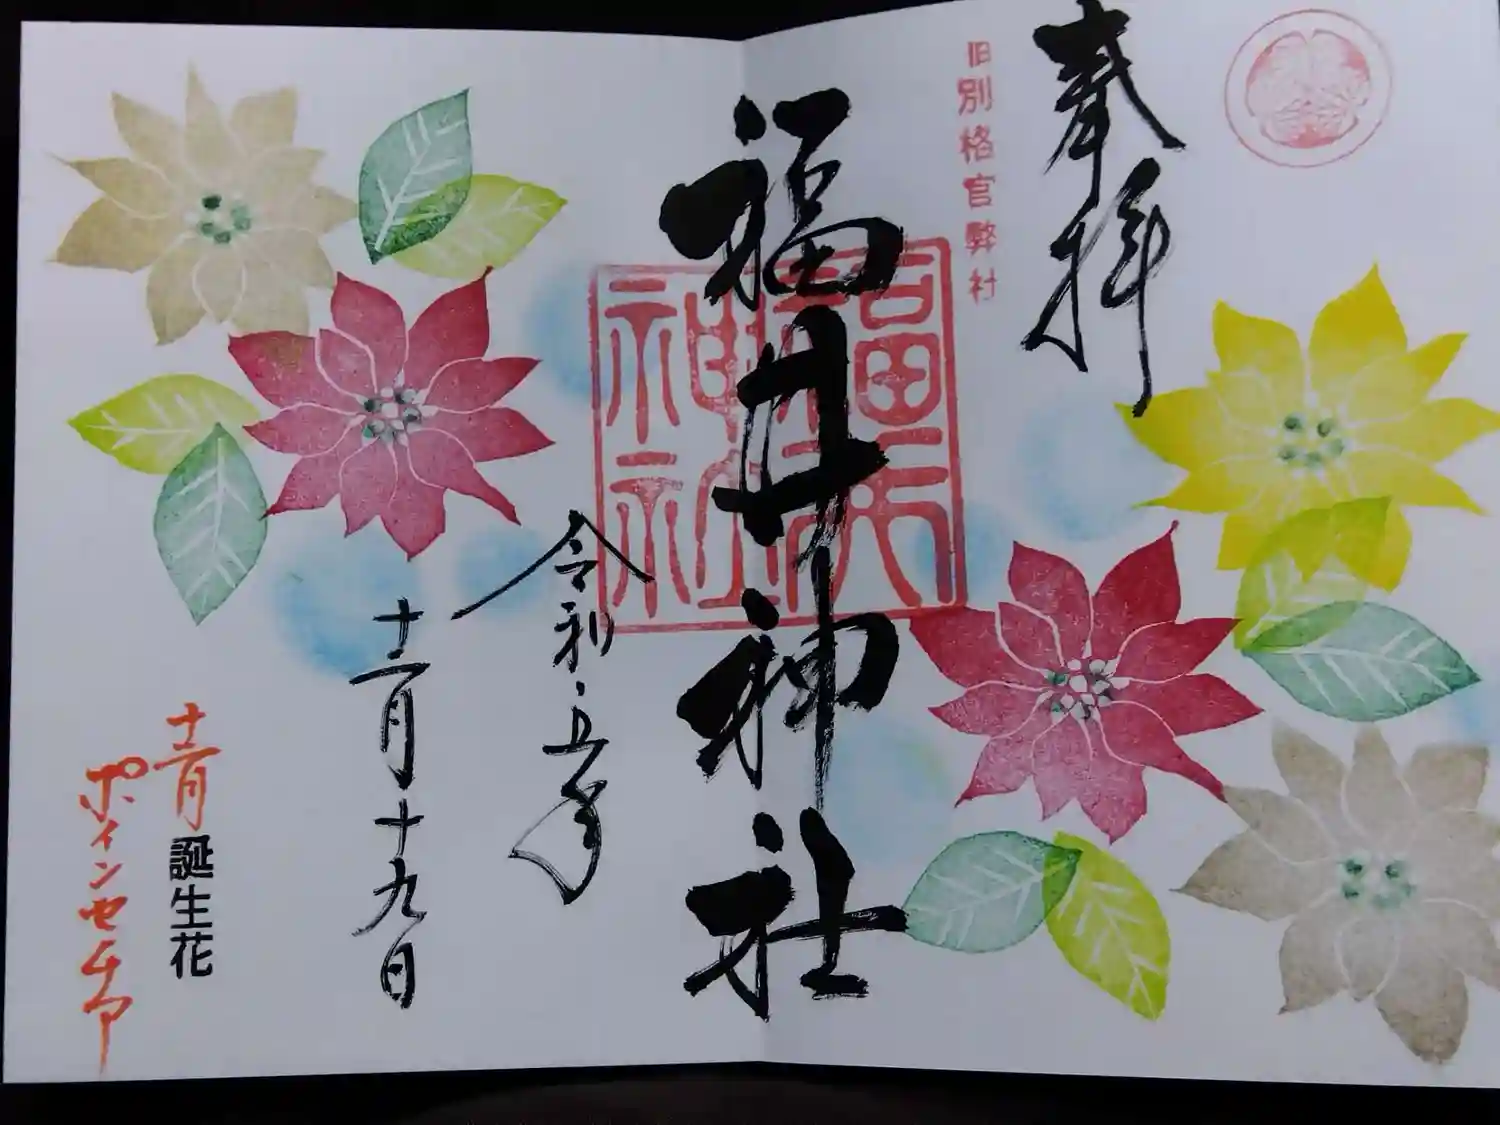 奉拝
旧別格官弊社
福井神社
福井神社
令和五年
十二月十九日
十二月誕生花
ポインセチア